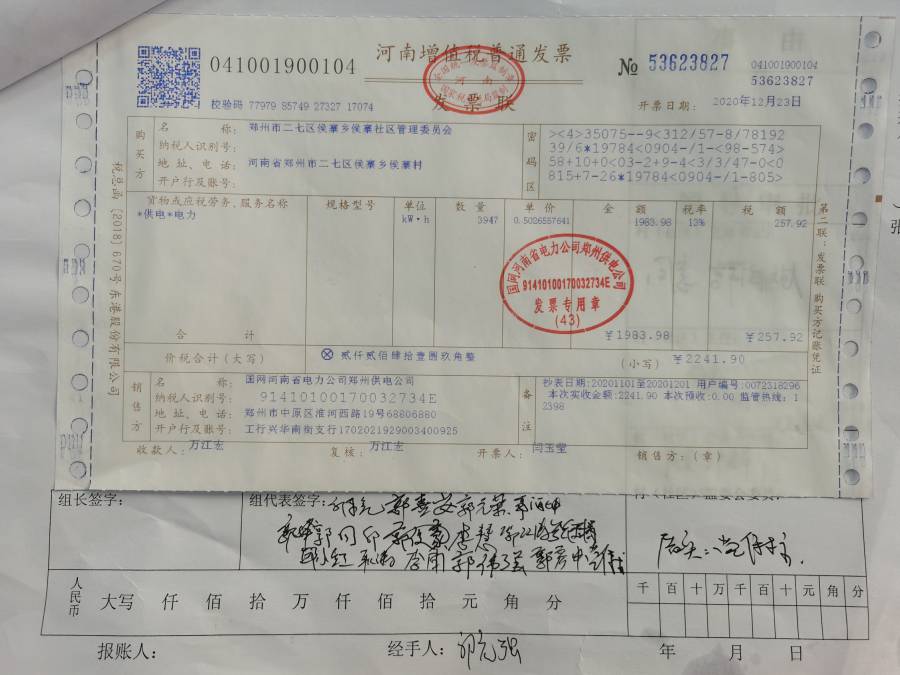 河南增值税普通发票
发票联
041001900104
№ 53623827
041001900104
53623827
校验码 77979 85749 27327 17074
开票日期: 2020年12月23日
购买方
名 称: 郑州市二七区侯寨乡侯寨社区管理委员会
纳税人识别号:
地 址、电 话: 河南省郑州市二七区侯寨乡侯寨村
开户行及账号:
密码区
><4>35075--9<312/57-8/78192
39/6*19784<0904-/1-<98-574>
58+10+0<03-2+9-4<3/3/47-0<0
815+7-26*19784<0904-/1-805>
货物或应税劳务、服务名称 规格型号 单位 数 量 单 价 金 额 税率 税 额
*供电*电力 kW·h 3947 0.5026557641 1983.98 13% 257.92
国网河南省电力公司郑州供电公司
91410100170032734E
发票专用章
(43)
合 计 ¥1983.98 ¥257.92
价税合计(大写) ⊗ 贰仟贰佰肆拾壹圆玖角整 (小写) ¥2241.90
销售方
名 称: 国网河南省电力公司郑州供电公司
纳税人识别号: 91410100170032734E
地 址、电 话: 郑州市中原区淮河西路19号68806880
开户行及账号: 工行兴华南街支行1702021929003400925
备注
抄表日期:20201101至20201201 用户编号:0072318296
本次实收金额:2241.90 本次预收:0.00 监管热线:1
2398
收款人: 万江宏 复核: 万江宏 开票人: 闫玉莹 销售方:(章)
税总函〔2018〕670号 东港股份有限公司
第二联:发票联 购买方记账凭证
组长签字: 组代表签字:
人民币 大写 仟 佰 拾 万 仟 佰 拾 元 角 分
千 百 十 万 千 百 十 元 角 分
报账人: 经手人: 年 月 日